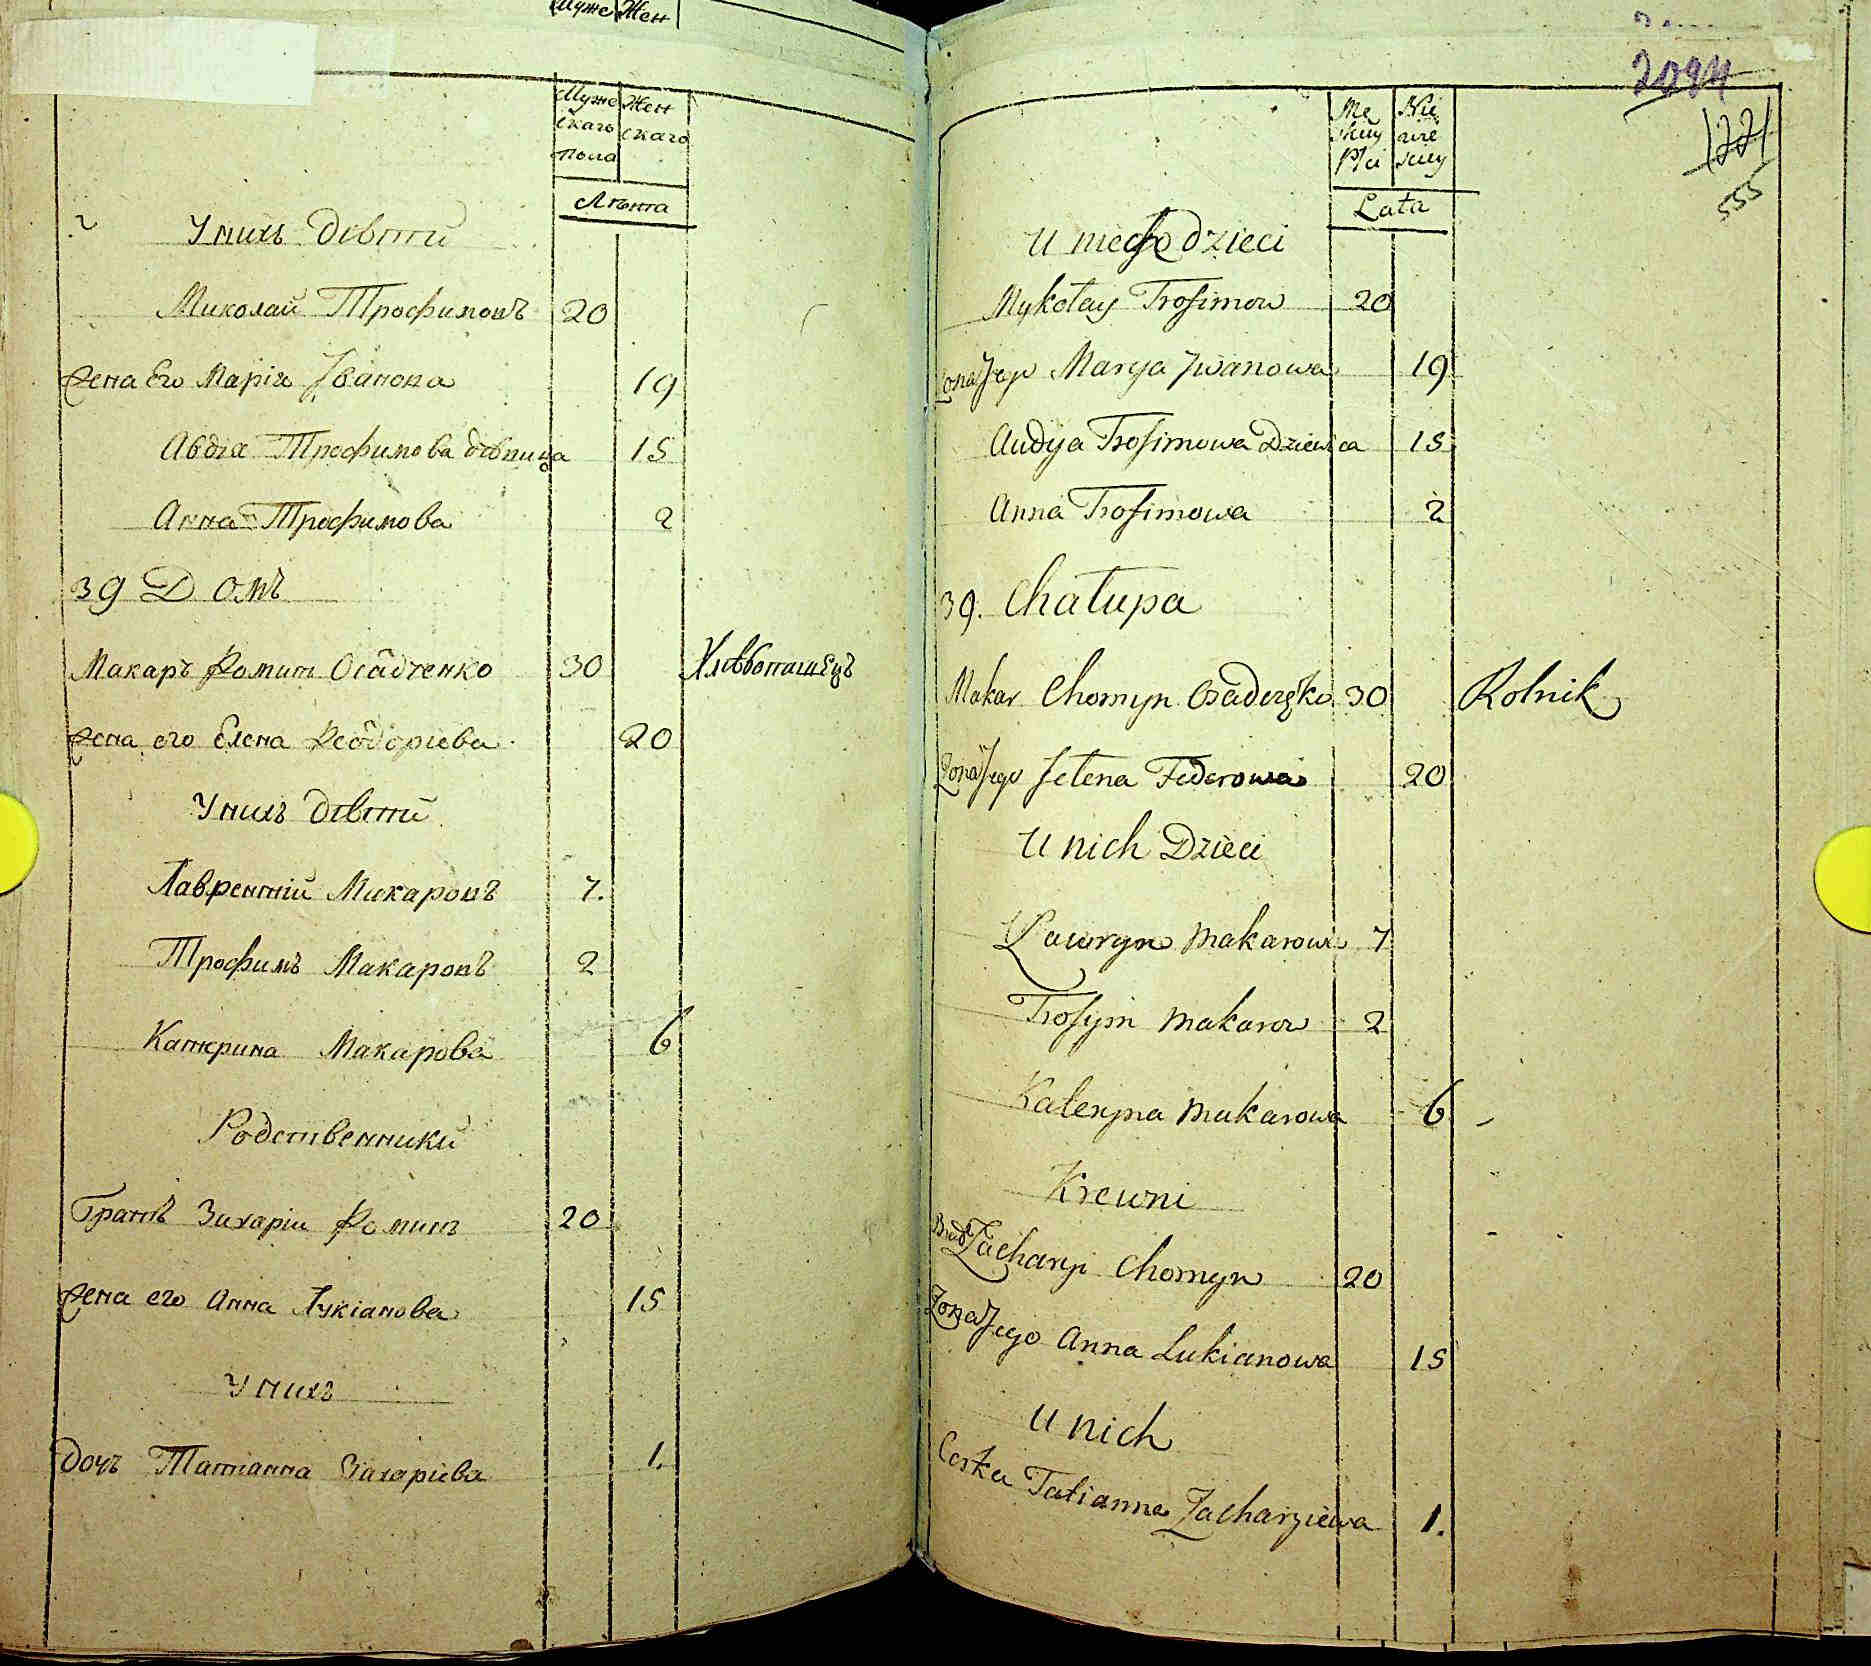 Муже Жен
Муже Жен
скаго скаго
пола
Лѣта
У нихъ дѣти
Миколай Трофимовъ 20
жена Его Марія Іванова 19
Авдія Трофимова дѣвица 15
Анна Трофимова 2
39 Домъ
Макаръ Фоминъ Осадченко 30 Хлѣбопашецъ
жена его Елена Феодоріева 20
У нихъ дѣти
Лаврентій Макаровъ 7.
Трофимъ Макаровъ 2
Катерина Макарова 6
Родственники
Братъ Захарій Фоминъ 20
жена его Анна Лукіанова 15
У нихъ
дочь Татіанна Захаріева 1.
2094
1221
555
Mę Nie
skiey wie
Płci skiey
Lata
U niego dzieci
Mykołay Trofimow 20
Zona Jego Marya Jwanowa 19
Audya Trofimowa Dziewica 15
Anna Trofimowa 2
39. Chałupa
Makar Chomyn Osadczko 30 Rolnik
Zona Jego Jełena Federowa 20
U nich Dzieci
Lawryn Makarow 7
Trofym Makarow 2
Kateryna Makarowa 6
Krewni
Brat Zachary Chomyn 20
Zona Jego Anna Lukianowa 15
U nich
Corka Tatianna Zacharyiewa 1.